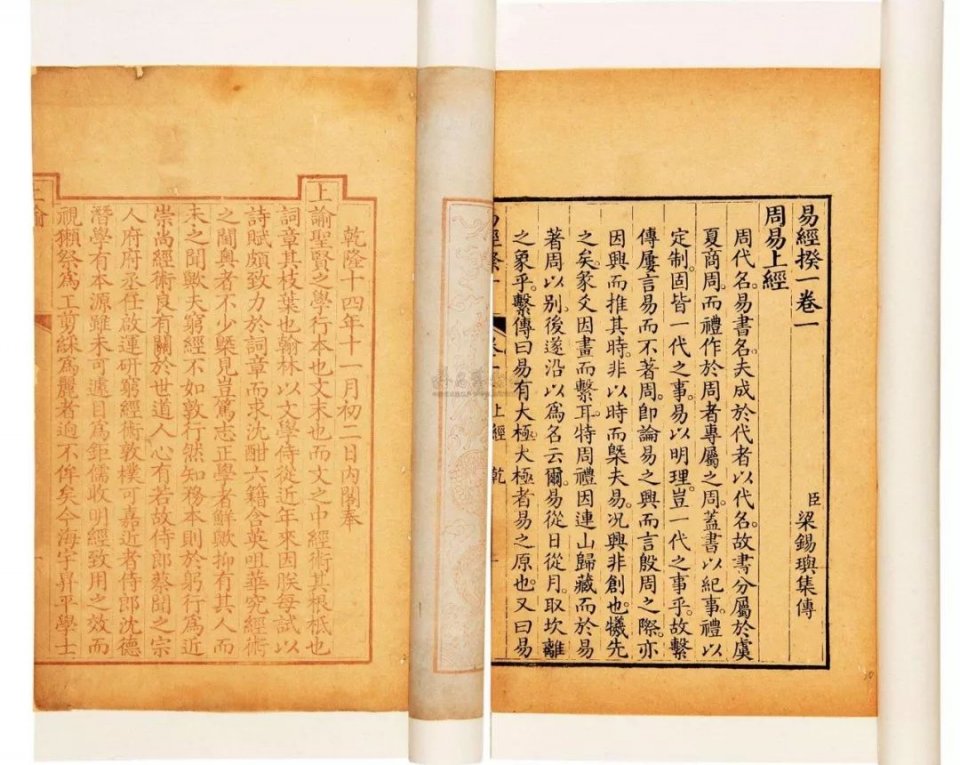 易經揆一卷一
臣梁錫璵集傳
周易上經
周代名。易書名。夫成於代者以代名。故書分屬於虞
夏商周。而禮作於周者專屬之周。蓋書以紀事。禮以
定制。固皆一代之事。易以明理。豈一代之事乎。故繫
傳屢言易而不著周。卽論易之興而言殷周之際。亦
因興而推其時。非以時而槩夫易。况興非創也。犧先
之矣。彖爻因畫而繫耳。特周禮因連山歸藏而於易
著周以别。後遂沿以爲名云爾。易從日從月。取坎離
之象乎。繫傳曰易有大極。大極者易之原也。又曰易
上經 乾
乾隆十四年十一月初二日內閣奉
上諭聖賢之學行本也文末也而文之中經術其根柢也
詞章其枝葉也翰林以文學侍從近年來因朕每試以
詩賦頗致力於詞章而求沈酣六籍含英咀華究經術
之閫奥者不少槩見豈篤志正學者鮮歟抑有其人而
未之聞歟夫窮經不如敦行然知務本則於躬行爲近
崇尚經術良有關於世道人心有若故侍郎蔡聞之宗
人府府丞任啟運研窮經術敦樸可嘉近者侍郎沈德
潛學有本源雖未可遽目爲鉅儒收明經致用之效而
視獺祭爲工剪綵爲麗者逈不侔矣今海宇昇平學士